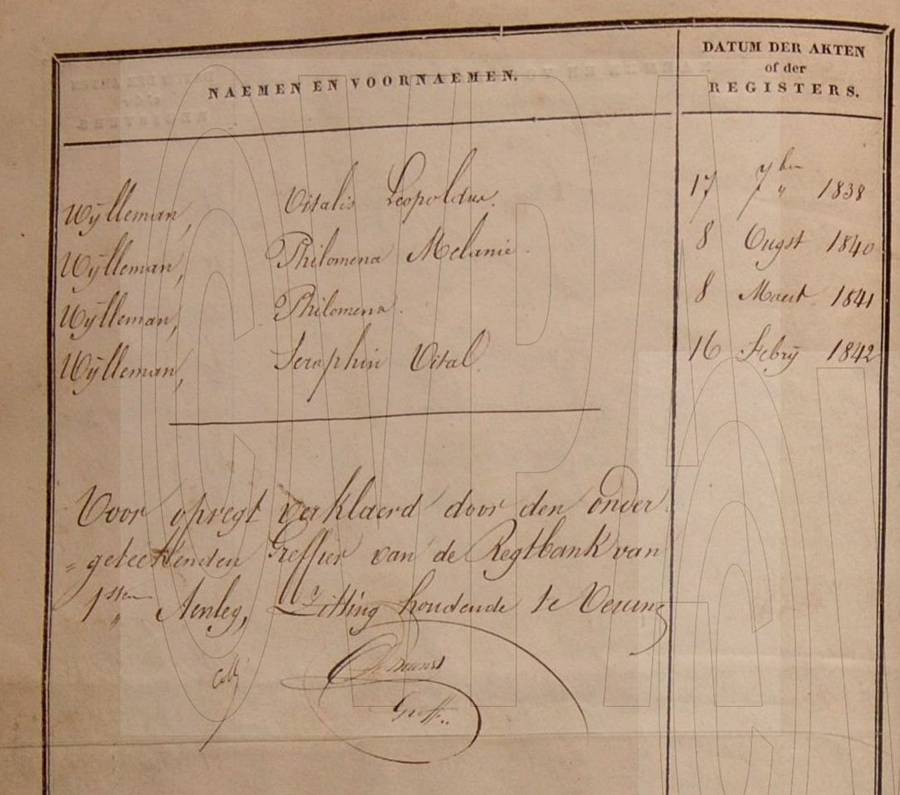 NAEMEN EN VOORNAEMEN.
DATUM DER AKTEN
of der
REGISTERS.
Wylleman, Vitalis Leopoldus. 17 7ber 1838
Wylleman, Philomena Melanie. 8 Ougst 1840
Wylleman, Philomena. 8 Maert 1841
Wylleman, Seraphin Vital. 16 Febrÿ 1842
Voor opregt verklaerd door den onder
=geteekenden Greffier van de Regtbank van
1sten Aenleg, Zitting houdende te Veurne
Greff.